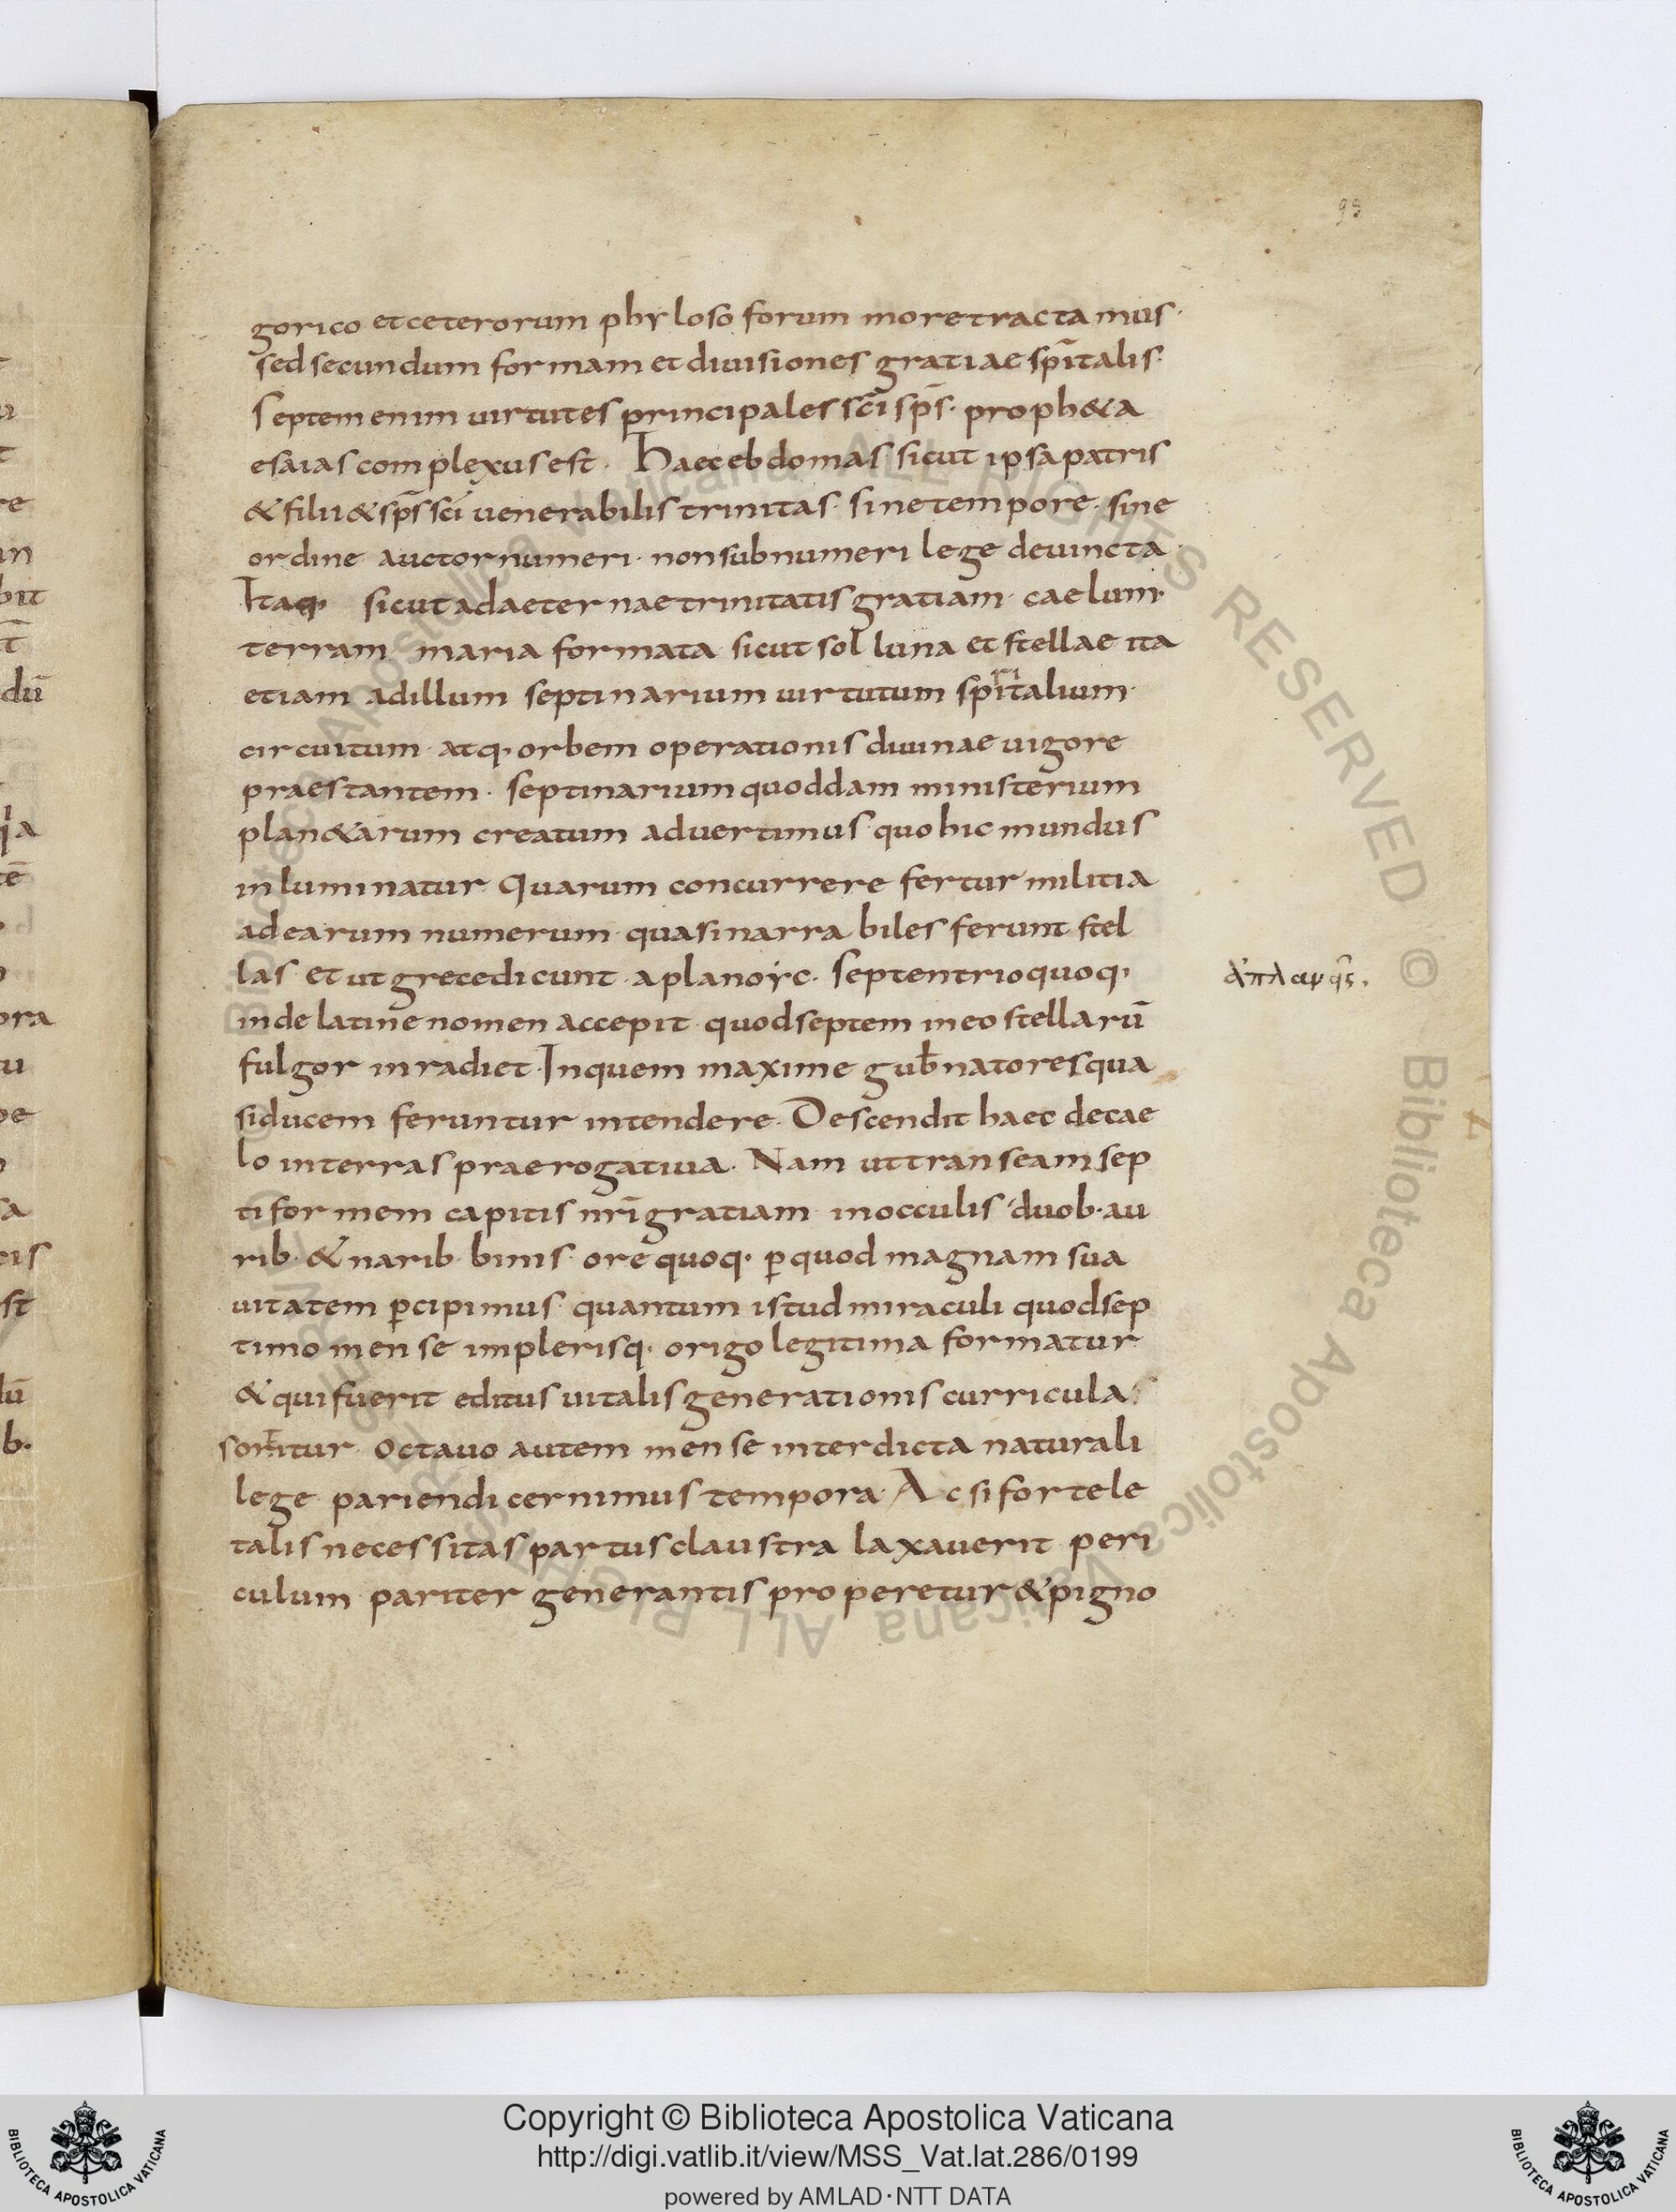 95
gorico et ceterorum phyloso forum more tractamus·
sed secundum formam et diuisiones gratiae sp̄italis·
Septem enim uirtutes principales sc̄i sp̄s· proph&a
esaias complexus est· Haec ebdomas sicut ipsa patris
& filii & sp̄s sc̄i uenerabilis trinitas· sine tempore· sine
ordine auctor numeri· non sub numeri lege deuincta·
Itaq· sicut ad aeternae trinitatis gratiam· caelum·
terram maria formata sicut sol luna et stellae ita
etiam ad illum septinarium uirtutum spiritalium·
circuitum· atq· orbem operationis diuinae uigore
praestantem· septinarium quoddam ministerium
plan&arum creatum aduertimus quo hic mundus
inluminatur· Quarum concurrere fertur militia
ad earum numerum· quasi narrabiles ferunt stel
las· et ut grece dicunt· aplanoyc· septentrio quoq·
ἀπλανεῖς·
inde latine nomen accepit· quod septem in eo stellarū
fulgor inradiet· In quem maxime gub̄natores qua
si ducem feruntur intendere· Descendit haec de cae
lo in terras praerogatiua· Nam ut transeam sep
tiformem capitis nr̄i gratiam· in occulis duob· au
rib· & narib· binis· ore quoq· ꝑ quod magnam sua
uitatem ꝑcipimus· quantum istud miraculi quod sep
timo mense implerisq· origo legitima formatur
& qui fuerit editus uitalis generationis curricula
sortitur· octauo autem mense interdicta naturali
lege pariendi cernimus tempora· Ac si forte le
talis necessitas partus claustra laxauerit peri
culum pariter generantis properetur & pigno
Copyright © Biblioteca Apostolica Vaticana
http://digi.vatlib.it/view/MSS_Vat.lat.286/0199
powered by AMLAD·NTT DATA